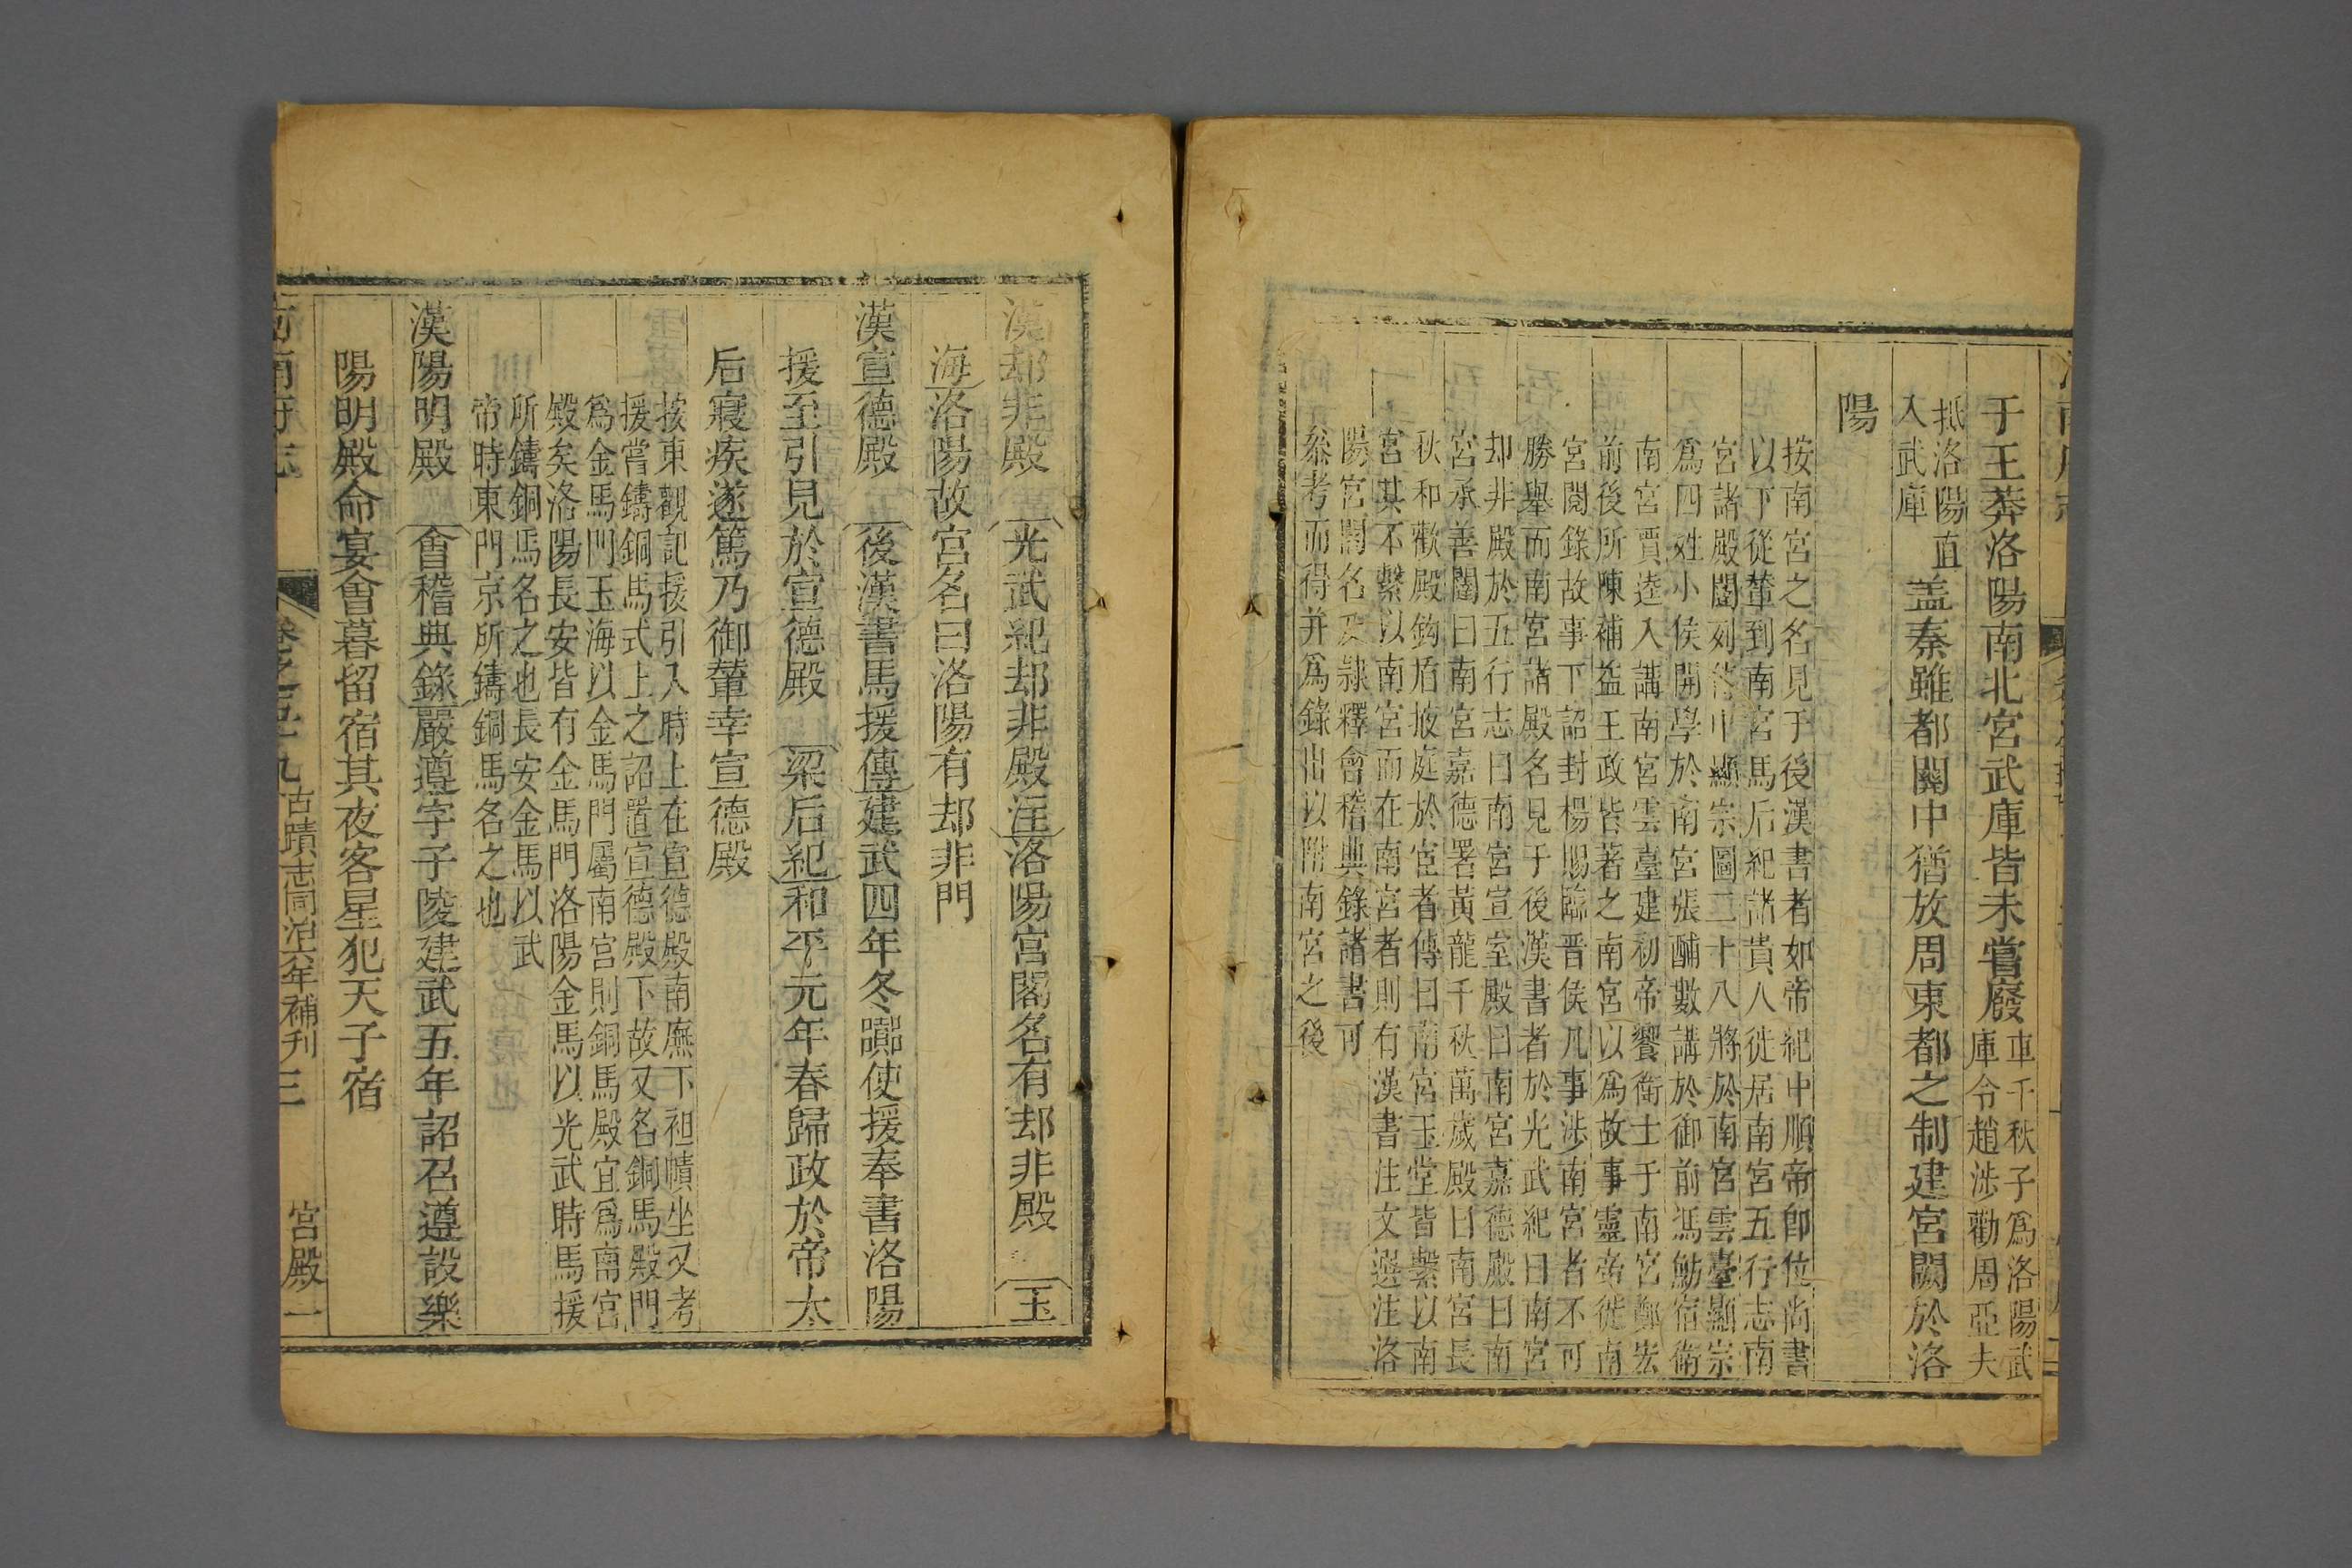 于王莽洛陽南北宮武庫皆未嘗廢車千秋子爲洛陽武
庫令趙涉勸周亞夫
抵洛陽直
入武庫
蓋秦雖都關中猶放周東都之制建宮闕於洛
陽
按南宮之名見于後漢書者如帝紀中順帝即位尚書
以下從輦到南宮馬后紀諸貴人徙居南宮五行志南
宮諸殿閣列 中顯宗圖二十八將於南宮雲臺顯宗
爲四姓小侯開學於南宮張酺數講於御前馮魴宿衛
南宮賈逵入講南宮雲臺建初帝饗衛士于南宮鄭宏
前後所陳補益王政皆著之南宮以爲故事靈帝徙南
宮閱錄故事下詔封楊賜臨晋侯凡事涉南宮者不可
勝舉而南宮諸殿名見于後漢書者於光武紀曰南宮
却非殿於五行志曰南宮宣室殿曰南宮嘉德殿曰南
宮承善闥曰南宮嘉德署黃龍千秋萬歲殿曰南宮長
秋和歡殿鈎盾掖庭於宦者傳曰南宮玉堂皆繫以南
宮其不繫以南宮而在南宮者則有漢書注文選注洛
陽宮閣名及隷釋會稽典錄諸書可
叅考而得并爲錄出以附南宮之後
漢却非殿 光武紀却非殿注洛陽宮閣名有却非殿 玉
海洛陽故宮名曰洛陽有却非門
漢宣德殿 後漢書馬援傳建武四年冬囂使援奉書洛陽
援至引見於宣德殿 梁后紀和平元年春歸政於帝太
后寢疾遂篤乃御輦幸宣德殿
按東觀記援引入時上在宣德殿南廡下袒幘坐又考
援嘗鑄銅馬式上之詔置宣德殿下故又名銅馬殿門
爲金馬門玉海以金馬門屬南宮則銅馬殿宜爲南宮
殿矣洛陽長安皆有金馬門洛陽金馬以光武時馬援
所鑄銅馬名之也長安金馬以武
帝時東門京所鑄銅馬名之也
漢陽明殿 會稽典錄嚴遵字子陵建武五年詔召遵設樂
陽明殿命宴會暮留宿其夜客星犯天子宿
河南府志 卷之五十九 古蹟志 同治六年補刊 三 宮殿一